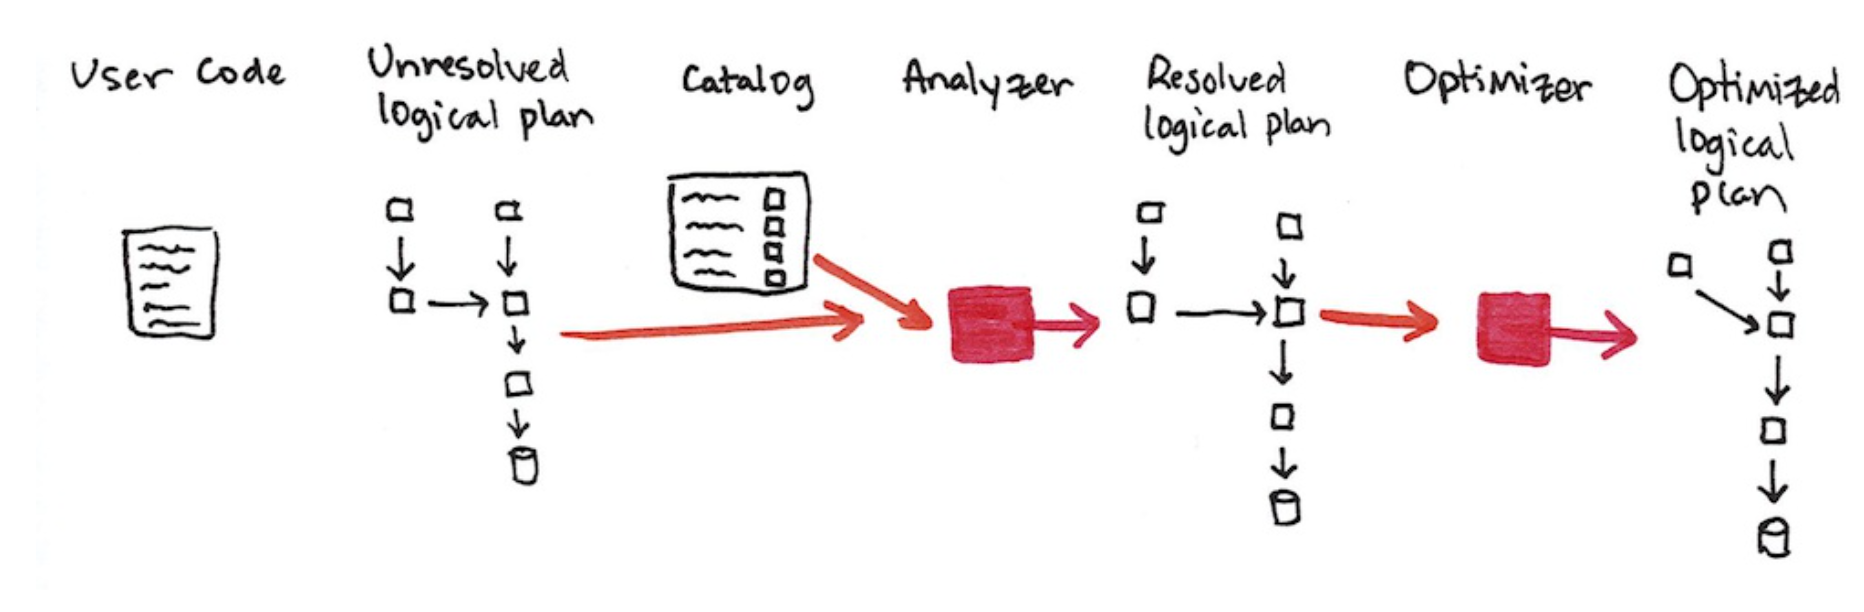 User Code
Unresolved
logical plan
Catalog
Analyzer
Resolved
logical plan
Optimizer
Optimized
logical
plan